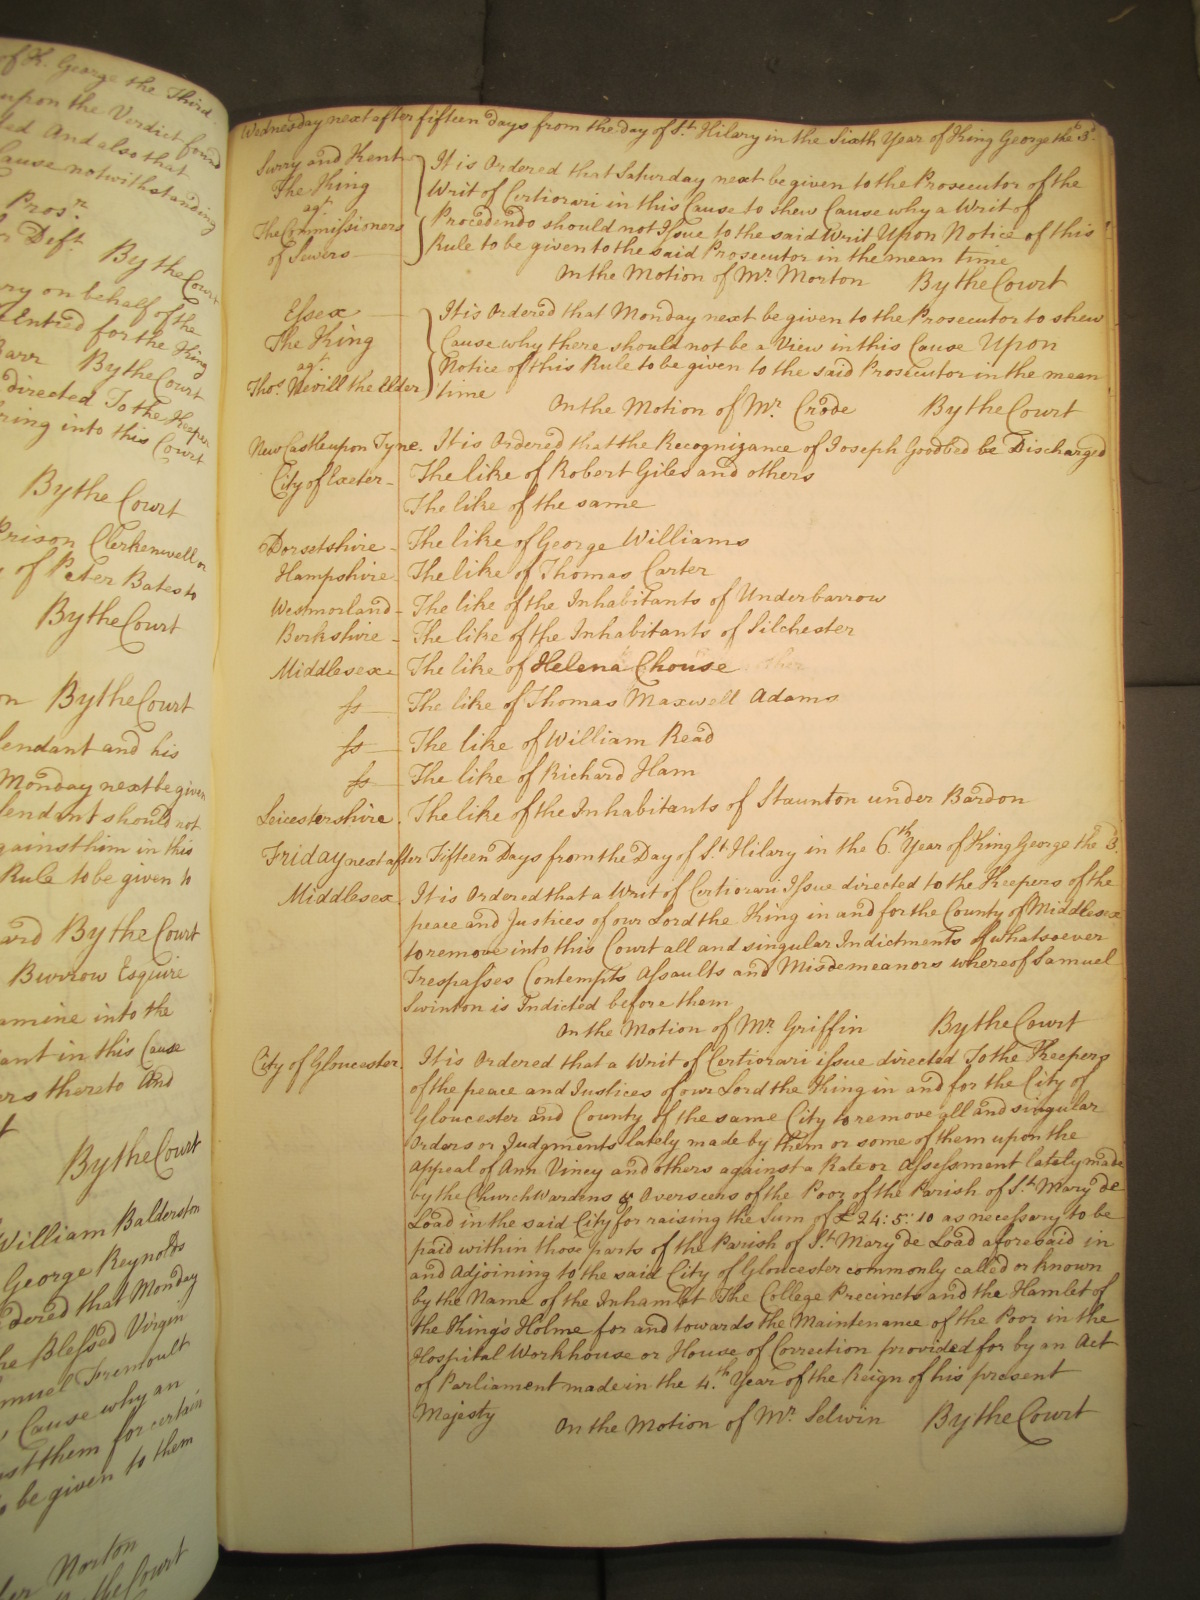 of K. George the Third
upon the Verdict found
And also that
Cause notwithstanding
Pros.r
Deft By the Court
on behalf of the
Entred for the King
By the Court
directed To the Keeper
bring into this Court
By the Court
Prison Clerkenwell
of Peter Bates to
By the Court
By the Court
and his
Monday next be given
should not
against him in this
Rule to be given to
By the Court
Burrow Esquire
into the
in this Cause
thereto And
By the Court
William Balderston
George Reynolds
that Monday
the Blessed Virgin
Fremoult
Cause why an
them for certain
be given to them
Norton
the Court
Wednesday next after fifteen days from the day of S.t Hilary in the Sixth Year of King George the 3.d
Surry and Kent
The King
ag.t
The Commissioners
of Sewers
It is Ordered that Saturday next be given to the Prosecutor of the
Writ of Certiorari in this Cause to shew Cause why a Writ of
Procedendo should not Issue to the said Writ Upon Notice of this
Rule to be given to the said Prosecutor in the mean time
On the Motion of Mr. Morton By the Court
Essex
The King
ag.t
Tho.s Nevill the Elder
It is Ordered that Monday next be given to the Prosecutor to shew
Cause why there should not be a View in this Cause Upon
Notice of this Rule to be given to the said Prosecutor in the mean
time
On the Motion of Mr. Crode By the Court
New Castle upon Tyne. It is Ordered that the Recognizance of Joseph Goodbed be Discharged
City of Exeter - The like of Robert Giles and others
The like of the same
Dorsetshire - The like of George Williams
Hampshire - The like of Thomas Carter
Wesmorland - The like of the Inhabitants of Underbarrow
Berkshire - The like of the Inhabitants of Silchester
Middlesex The like of Helena Chouse
ss The like of Thomas Maxwell Adams
ss The like of William Read
ss The like of Richard Ham
Leicestershire. The like of the Inhabitants of Staunton under Bardon
Friday next after Fifteen Days from the Day of S.t Hilary in the 6.th Year of King George the 3.
Middlesex It is Ordered that a Writ of Certiorari Issue directed to the Keepers of the
peace and Justices of our Lord the King in and for the County of Middlesex
to remove into this Court all and singular Indictments of whatsoever
Trespasses Contempts Assaults and Misdemeanors whereof Samuel
Swinton is Indicted before them
On the Motion of Mr. Griffin By the Court
City of Gloucester. It is Ordered that a Writ of Certiorari issue directed To the Keepers
of the peace and Justices of our Lord the King in and for the City of
Gloucester and County of the same City to remove all and singular
Orders or Judgments lately made by them or some of them upon the
Appeal of Ann Viney and others against a Rate or Assessment lately made
by the Church Wardens & Overseers of the Poor of the Parish of S.t Mary de
Load in the said City for raising the Sum of £24: 5: 10 as necessary to be
paid within those parts of the Parish of S.t Mary de Load aforesaid in
and Adjoining to the said City of Gloucester commonly called or known
by the Name of the Inhamlet The College Precincts and the Hamlet of
the King's Holme for and towards the Maintenance of the Poor in the
Hospital Workhouse or House of Correction provided for by an Act
of Parliament made in the 4.th Year of the Reign of his present
Majesty On the Motion of Mr. Selwin By the Court